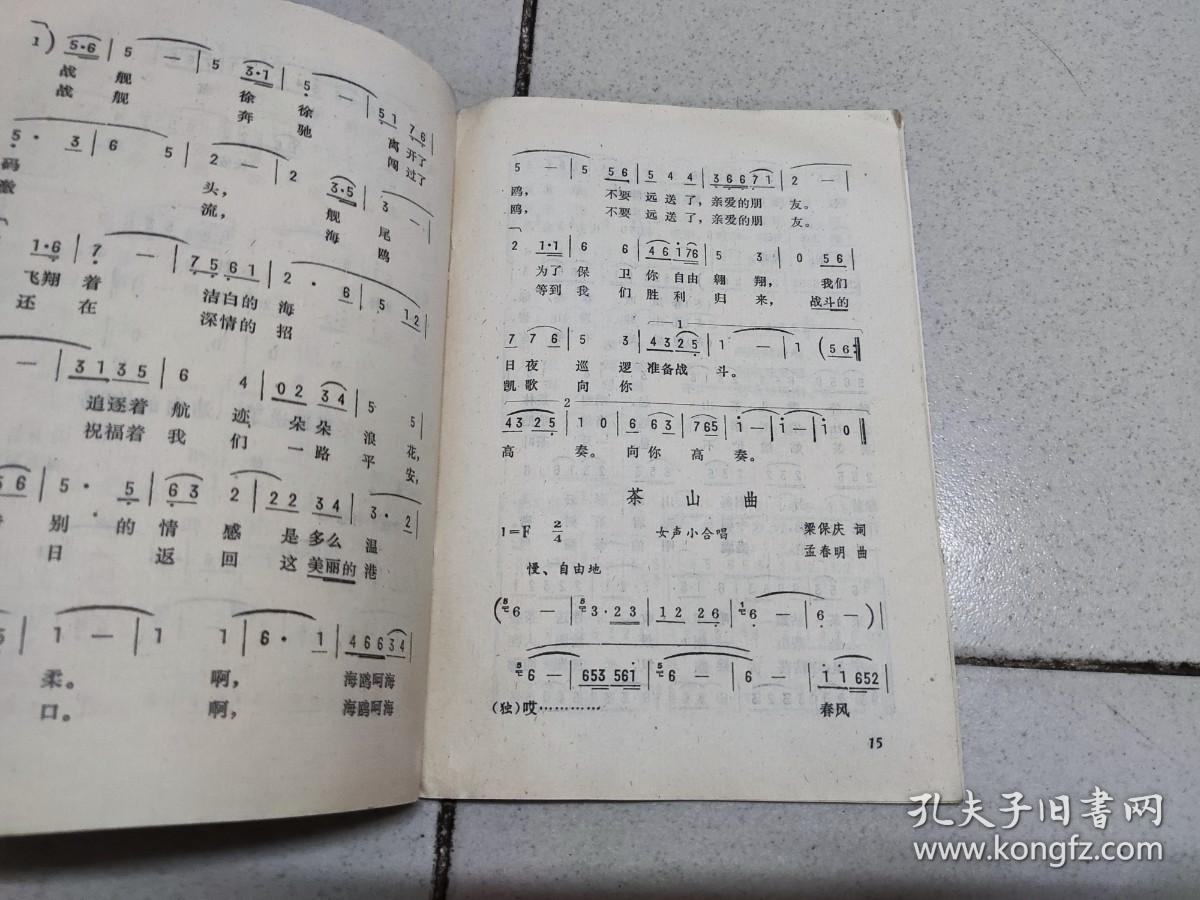 1) 5·6 | 5 — | 5 3·1 | 5 — | 51 76
战舰 徐徐 离开了
战舰 奔驰 闯过了
5· 3 | 6 5 | 2 — | 2 3·5 | 3 —
码 头, 舰尾
激 流, 海鸥
1·6 | 7 — | 75 61 | 2· 6 | 5 12
飞翔着 洁白的海
还在 深情的招
— | 31 35 | 6 4 | 02 34 | 5 5
追逐着航迹,朵朵浪花,
祝福着我们一路平安,
56 | 5· 5 | 63 2 | 22 34 | 3·2
别的情感是多么温
日返回这美丽的港
5 | 1 — | 1 1 | 6· 1 | 46634
柔。 啊, 海鸥呵海
口。 啊, 海鸥呵海
5 — | 5 56 | 5 4 4 | 3 66 71 | 2 — |
鸥, 不要远送了,亲爱的朋友。
鸥, 不要远送了,亲爱的朋友。
2 1·1 | 6 6 | 46 176 | 5 3· | 0 56 |
为了保卫你自由翱翔, 我们
等到我们胜利归来, 战斗的
1
7 76 | 5 3 | 4325 | 1 — | 1 (56:||
日夜巡逻准备战斗。
凯歌向你
2
43 25 | 1 0 | 6 63 | 765 | 1 — | 1 — | 1 0 ||
高奏。向你高奏。
茶山曲
1=F 2/4 女声小合唱 梁保庆 词
孟春明 曲
慢、自由地
(5 6 — | 5 3·23 | 12 26 | 1 6 — | 6 —)
5 6 — | 653 561 | 5 6 — | 6 — | 1 1652 |
(独)哎………… 春风
15
孔夫子旧书网
www.kongfz.com